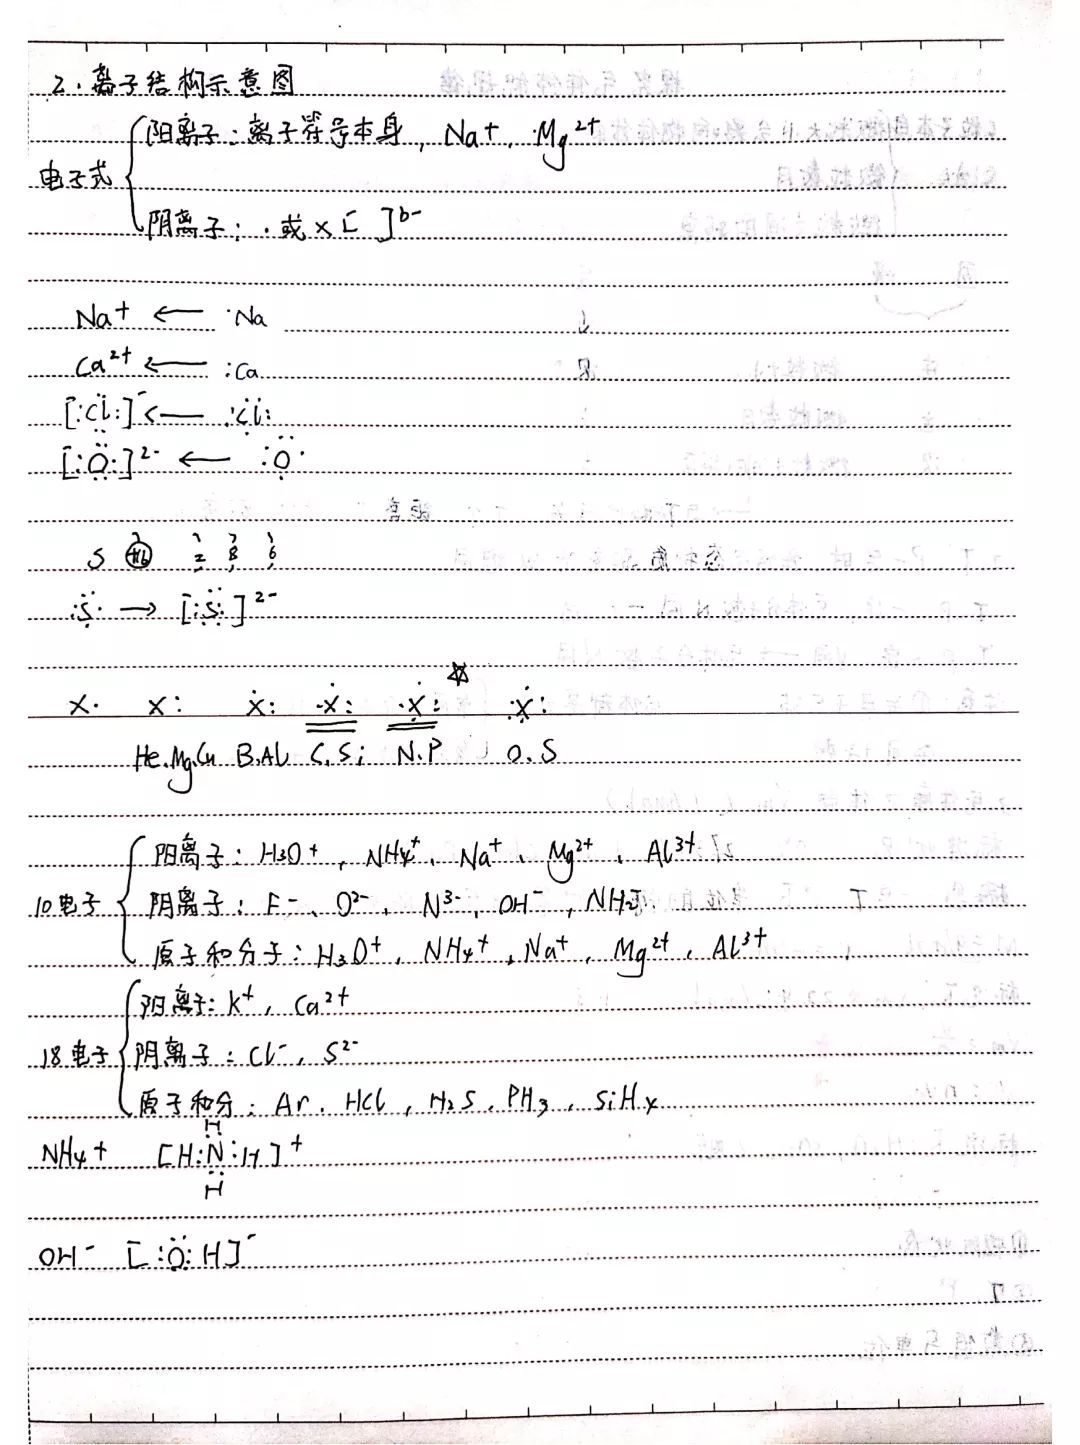 2. 离子结构示意图
电子式
阳离子：离子符号本身，Na+、Mg²⁺
阴离子：·或×[ ]ᵇ⁻
Na+ ← ·Na
Ca²⁺ ← :Ca
[:Cl:]⁻ ← :Cl:
[:O:]²⁻ ← :O·
S +16 2 8 6
:S· → [:S:]²⁻
X· X: X: ·X: ·X: :X: ☆
He.Mg.Cu B.Al C.Si N.P O.S
10电子
阳离子：H3O+，NH4+、Na+、Mg²⁺、Al³⁺
阴离子：F⁻、O²⁻、N³⁻、OH⁻，NH2⁻
原子和分子：H3O+，NH4+、Na+、Mg²⁺、Al³⁺
18电子
阳离子：K+，Ca²⁺
阴离子：Cl⁻，S²⁻
原子和分：Ar、HCl，H2S、PH3、SiH4
H
NH4+ [H:N:H]+
H
OH⁻ [:O:H]⁻